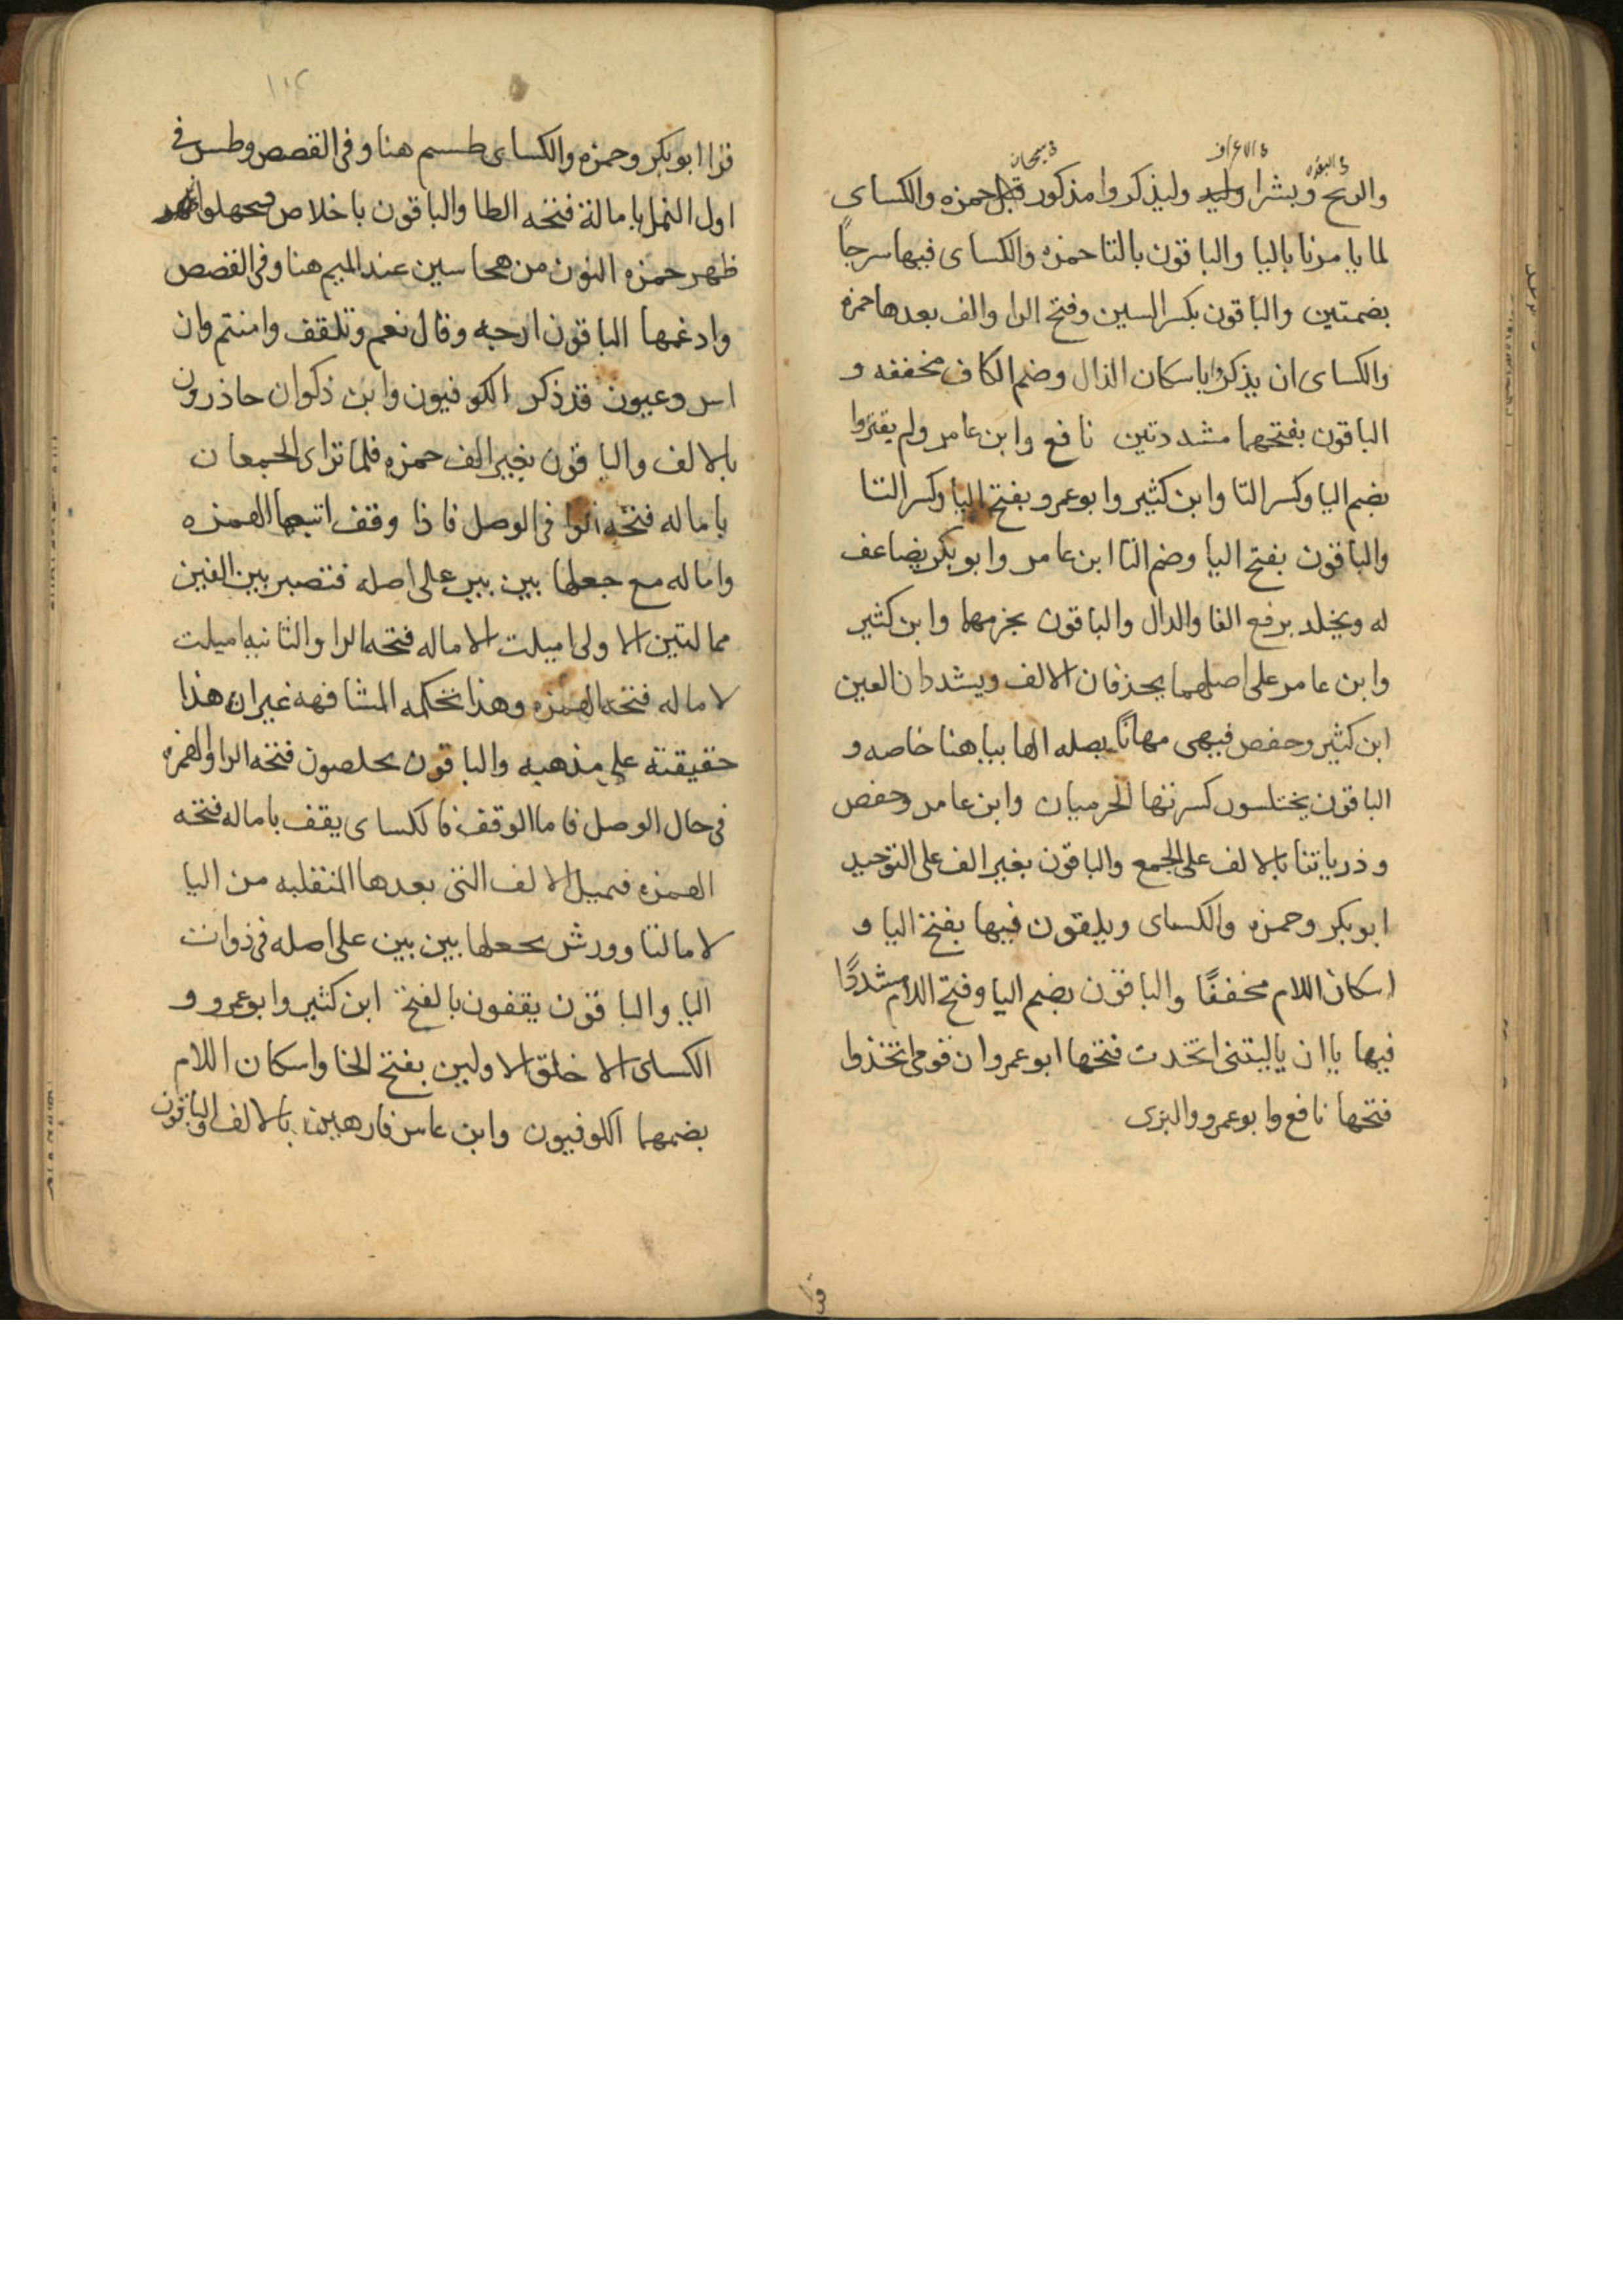 في البقره في الاعراف في سبحان
والريح وبشرا وليذكروا مذكور قبل حمزه والكساى
لما يامرنا باليا والباقون بالتا حمزه والكساى فيها سرجًا
بضمتين والباقون بكسر السين وفتح الرا والف بعدها حمزه
والكساى ان يذكر باسكان الذال وضم الكاف مخففه و
الباقون بفتحهما مشددتين نافع وابن عامر ولم يقتروا
بضم اليا وكسر التا وابن كثير وابو عمرو بفتح اليا وكسر التا
والباقون بفتح اليا وضم التا ابن عامر وابو بكر يضاعف
له ويخلد برفع الفا والدال والباقون بجزمهما وابن كثير
وابن عامر على اصلهما يحذفان الالف ويشددان العين
ابن كثير وحفص فيهى مهانًا يصله الها بيا هنا خاصه و
الباقون يختلسون كسرتها الحرميان وابن عامر وحفص
وذرياتنا بالالف على الجمع والباقون بغير الف على التوحيد
ابو بكر وحمزه والكساى ويلقون فيها بفتح اليا و
اسكان اللام مخففًا والباقون بضم اليا وفتح اللام مشددًا
فيها ياان ياليتنى اتخدت فتحها ابو عمرو ان قومى اتخذوا
فتحها نافع وابو عمرو والبزى
قرا
قرا ابو بكر وحمزه والكساى طسم هنا وفى القصص وطس فى
اول النمل بامالة فتحه الطا والباقون باخلاص فتحها
ظهر حمزه النون من هجا سين عند الميم هنا وفى القصص
وادغمها الباقون ارجه وقال نعم وتلقف وامنتم وان
اسر وعيون قد ذكر الكوفيون وابن ذكوان حاذرون
بالالف والباقون بغير الف حمزه فلما تراى الجمعان
باماله فتحه الرا فى الوصل فاذا وقف اتبعها الهمزه
واماله مع جعلها بين بين على اصله فتصير بين الفين
ممالتين الاولى اميلت لاماله فتحه الرا والثانيه اميلت
لاماله فتحه الهمزه وهذا تحكمه المشافهه غير ان هذا
حقيقته على مذهبه والباقون يخلصون فتحه الرا والهمزه
فى حال الوصل فاما الوقف فالكساى يقف باماله فتحه
الهمزه فيميل الالف التى بعدها المنقلبه من اليا
لامالتها وورش يجعلها بين بين على اصله فى ذوات
اليا والباقون يقفون بالفتح ابن كثير وابو عمرو و
الكساى الا خلق الاولين بفتح الخا واسكان اللام
بضمهما الكوفيون وابن عامر فارهين بالالف والباقون